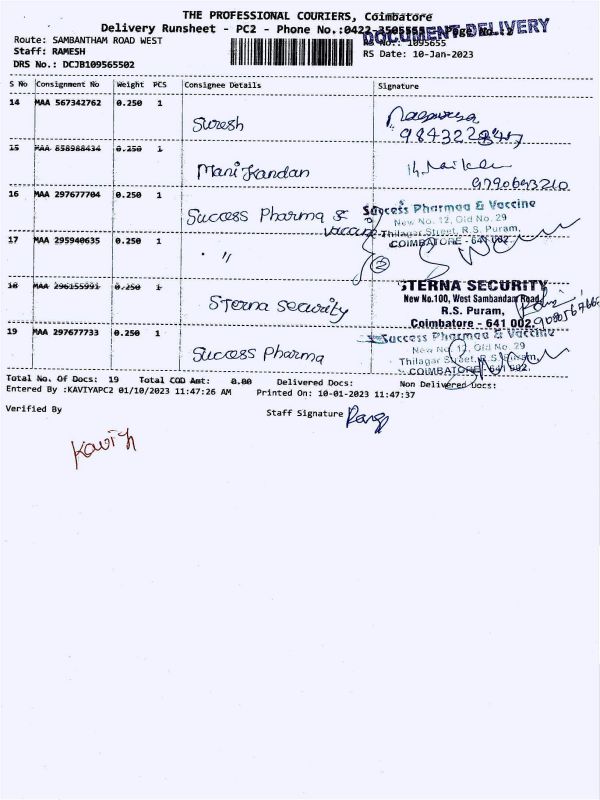 THE PROFESSIONAL COURIERS, Coimbatore
Delivery Runsheet - PC2 - Phone No.:0422-3505555 Page No.:2
DOCUMENT DELIVERY
Route: SAMBANTHAM ROAD WEST
RS No.: 1095655
Staff: RAMESH
RS Date: 10-Jan-2023
DRS No.: DCJB109565502
S No Consignment No Weight PCS Consignee Details Signature
14 MAA 567342762 0.250 1
Suresh
15 MAA 858988434 0.250 1
Manikandan
9790693210
16 MAA 297677704 0.250 1
Success Pharma & Vaccine
Success Pharmaa & Vaccine
New No. 12, Old No. 29
Thilagar Street, R.S. Puram,
COIMBATORE - 641 002.
17 MAA 295940635 0.250 1
" 2
18 MAA 296155991 0.250 1
Sterna Security
STERNA SECURITY
New No.100, West Sambandam Road,
R.S. Puram,
Coimbatore - 641 002.
19 MAA 297677733 0.250 1
Success Pharma
Success Pharmaa & Vaccine
New No. 12, Old No. 29
Thilagar Street, R.S. Puram,
COIMBATORE - 641 002.
Total No. Of Docs: 19 Total COD Amt: 0.00 Delivered Docs: Non Delivered Docs:
Entered By :KAVIYAPC2 01/10/2023 11:47:26 AM Printed On: 10-01-2023 11:47:37
Verified By Staff Signature